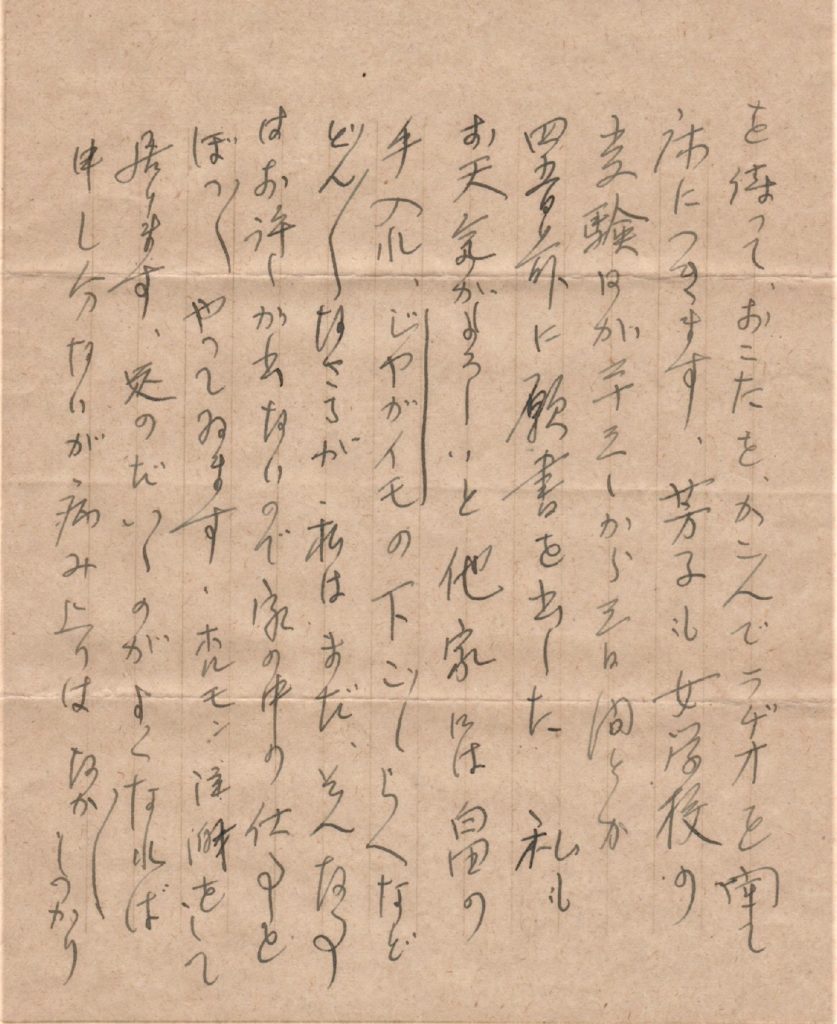 を待って、おこたを、かこんでラヂオを聞して
床につきます、芳子も女学校の
受験日が廿三日から三日間とか
四五日前に願書を出した 私も
お天気がよろしいと他家には畠の
手入れ、じやがイモの下ごしらへなど
どん〱なさるが、私はまだ、そんな事
はお許しが出ないので家の中の仕事を
ぼつ〱やつてゐます、ホルモン注射をして
居ります、のだ〱のがよくなれば
申し分ないが病み上りはなか〱しつかり